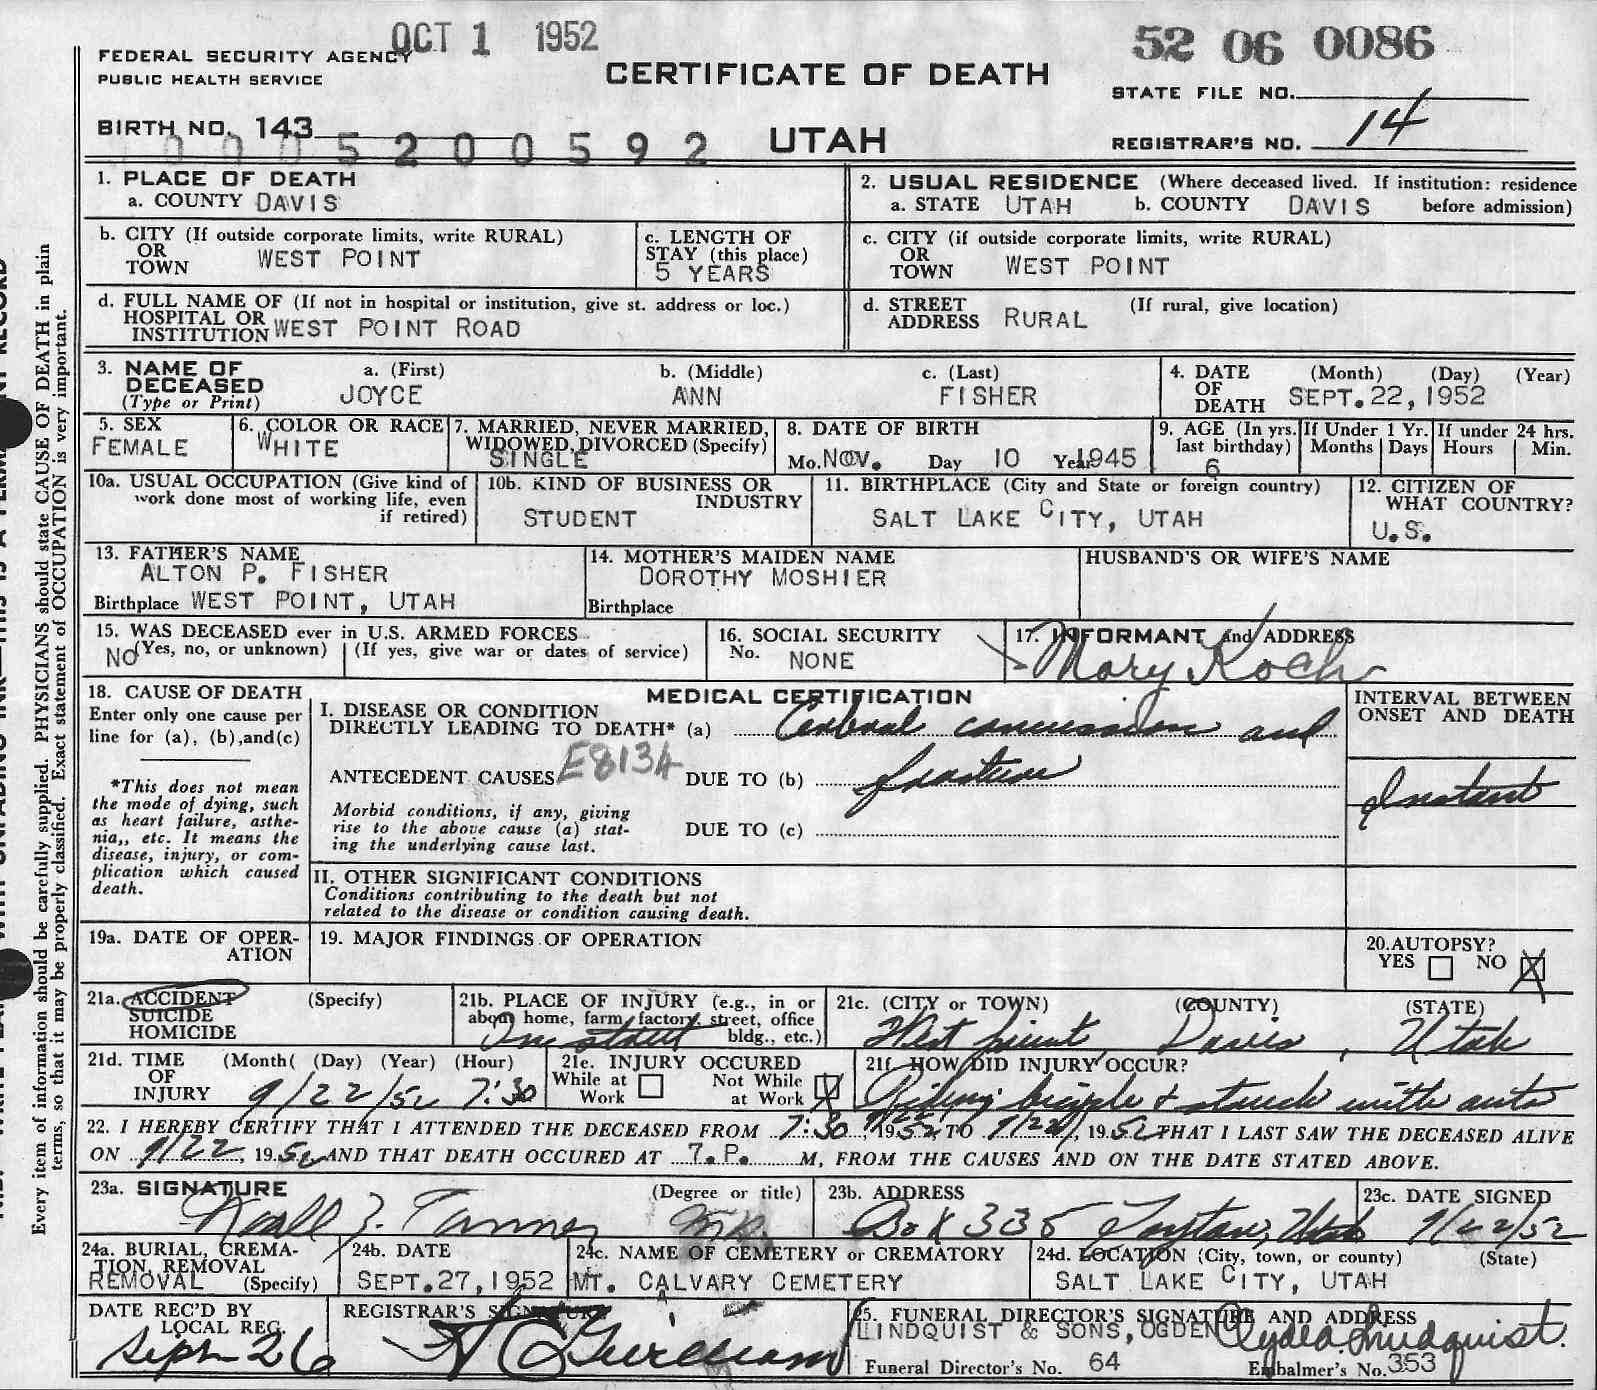 OCT 1 1952
52 06 0086
FEDERAL SECURITY AGENCY
PUBLIC HEALTH SERVICE
CERTIFICATE OF DEATH
STATE FILE NO.
BIRTH NO. 143
0 0 0 5 2 0 0 5 9 2
UTAH
REGISTRAR'S NO. 14
1. PLACE OF DEATH
a. COUNTY DAVIS
2. USUAL RESIDENCE (Where deceased lived. If institution: residence
a. STATE UTAH b. COUNTY DAVIS before admission)
b. CITY (If outside corporate limits, write RURAL)
OR
TOWN WEST POINT
c. LENGTH OF
STAY (this place)
5 YEARS
c. CITY (if outside corporate limits, write RURAL)
OR
TOWN WEST POINT
d. FULL NAME OF (If not in hospital or institution, give st. address or loc.)
HOSPITAL OR
INSTITUTION WEST POINT ROAD
d. STREET (If rural, give location)
ADDRESS RURAL
3. NAME OF a. (First) b. (Middle) c. (Last)
DECEASED JOYCE ANN FISHER
(Type or Print)
4. DATE (Month) (Day) (Year)
OF
DEATH SEPT. 22, 1952
5. SEX
FEMALE
6. COLOR OR RACE
WHITE
7. MARRIED, NEVER MARRIED,
WIDOWED, DIVORCED (Specify)
SINGLE
8. DATE OF BIRTH
Mo. NOV. Day 10 Year 1945
9. AGE (In yrs.
last birthday)
6
If Under 1 Yr.
Months Days
If under 24 hrs.
Hours Min.
10a. USUAL OCCUPATION (Give kind of
work done most of working life, even
if retired)
10b. KIND OF BUSINESS OR
INDUSTRY
STUDENT
11. BIRTHPLACE (City and State or foreign country)
SALT LAKE CITY, UTAH
12. CITIZEN OF
WHAT COUNTRY?
U.S.
13. FATHER'S NAME
ALTON P. FISHER
Birthplace WEST POINT, UTAH
14. MOTHER'S MAIDEN NAME
DOROTHY MOSHIER
Birthplace
HUSBAND'S OR WIFE'S NAME
15. WAS DECEASED ever in U.S. ARMED FORCES
NO (Yes, no, or unknown) (If yes, give war or dates of service)
16. SOCIAL SECURITY
No. NONE
17. INFORMANT and ADDRESS
Mary Koch
18. CAUSE OF DEATH
Enter only one cause per
line for (a), (b),and(c)
*This does not mean
the mode of dying, such
as heart failure, asthe-
nia,, etc. It means the
disease, injury, or com-
plication which caused
death.
MEDICAL CERTIFICATION
I. DISEASE OR CONDITION
DIRECTLY LEADING TO DEATH* (a) Cerebral concussion and
ANTECEDENT CAUSES E8134 DUE TO (b) fracture
Morbid conditions, if any, giving
rise to the above cause (a) stat-
ing the underlying cause last.
DUE TO (c)
INTERVAL BETWEEN
ONSET AND DEATH
Instant
II. OTHER SIGNIFICANT CONDITIONS
Conditions contributing to the death but not
related to the disease or condition causing death.
19a. DATE OF OPER-
ATION
19. MAJOR FINDINGS OF OPERATION
20. AUTOPSY?
YES NO X
21a. ACCIDENT (Specify)
SUICIDE
HOMICIDE
21b. PLACE OF INJURY (e.g., in or
about home, farm, factory, street, office
bldg., etc.)
On street
21c. (CITY or TOWN) (COUNTY) (STATE)
West point, Davis, Utah
21d. TIME (Month( (Day) (Year) (Hour)
OF
INJURY 9/22/52 7:30
21e. INJURY OCCURED
While at Work Not While at Work
21f. HOW DID INJURY OCCUR?
Riding bicycle & struck with auto
22. I HEREBY CERTIFY THAT I ATTENDED THE DECEASED FROM 7:30, 1952, TO 9/22, 1952 THAT I LAST SAW THE DECEASED ALIVE
ON 9/22, 1952 AND THAT DEATH OCCURED AT 7. P. M, FROM THE CAUSES AND ON THE DATE STATED ABOVE.
23a. SIGNATURE (Degree or title)
Noall Z. Tanner M.D.
23b. ADDRESS
Box 335 Layton, Utah
23c. DATE SIGNED
9/22/52
24a. BURIAL, CREMA-
TION, REMOVAL
REMOVAL (Specify)
24b. DATE
SEPT. 27, 1952
24c. NAME OF CEMETERY or CREMATORY
MT. CALVARY CEMETERY
24d. LOCATION (City, town, or county) (State)
SALT LAKE CITY, UTAH
DATE REC'D BY
LOCAL REG.
Sept 26
REGISTRAR'S SIGNATURE
25. FUNERAL DIRECTOR'S SIGNATURE AND ADDRESS
LINDQUIST & SONS, OGDEN Clyde Lindquist.
Funeral Director's No. 64 Embalmer's No. 353
Every item of information should be carefully supplied. PHYSICIANS should state CAUSE OF DEATH in plain
terms, so that it may be properly classified. Exact statement of OCCUPATION is very important.